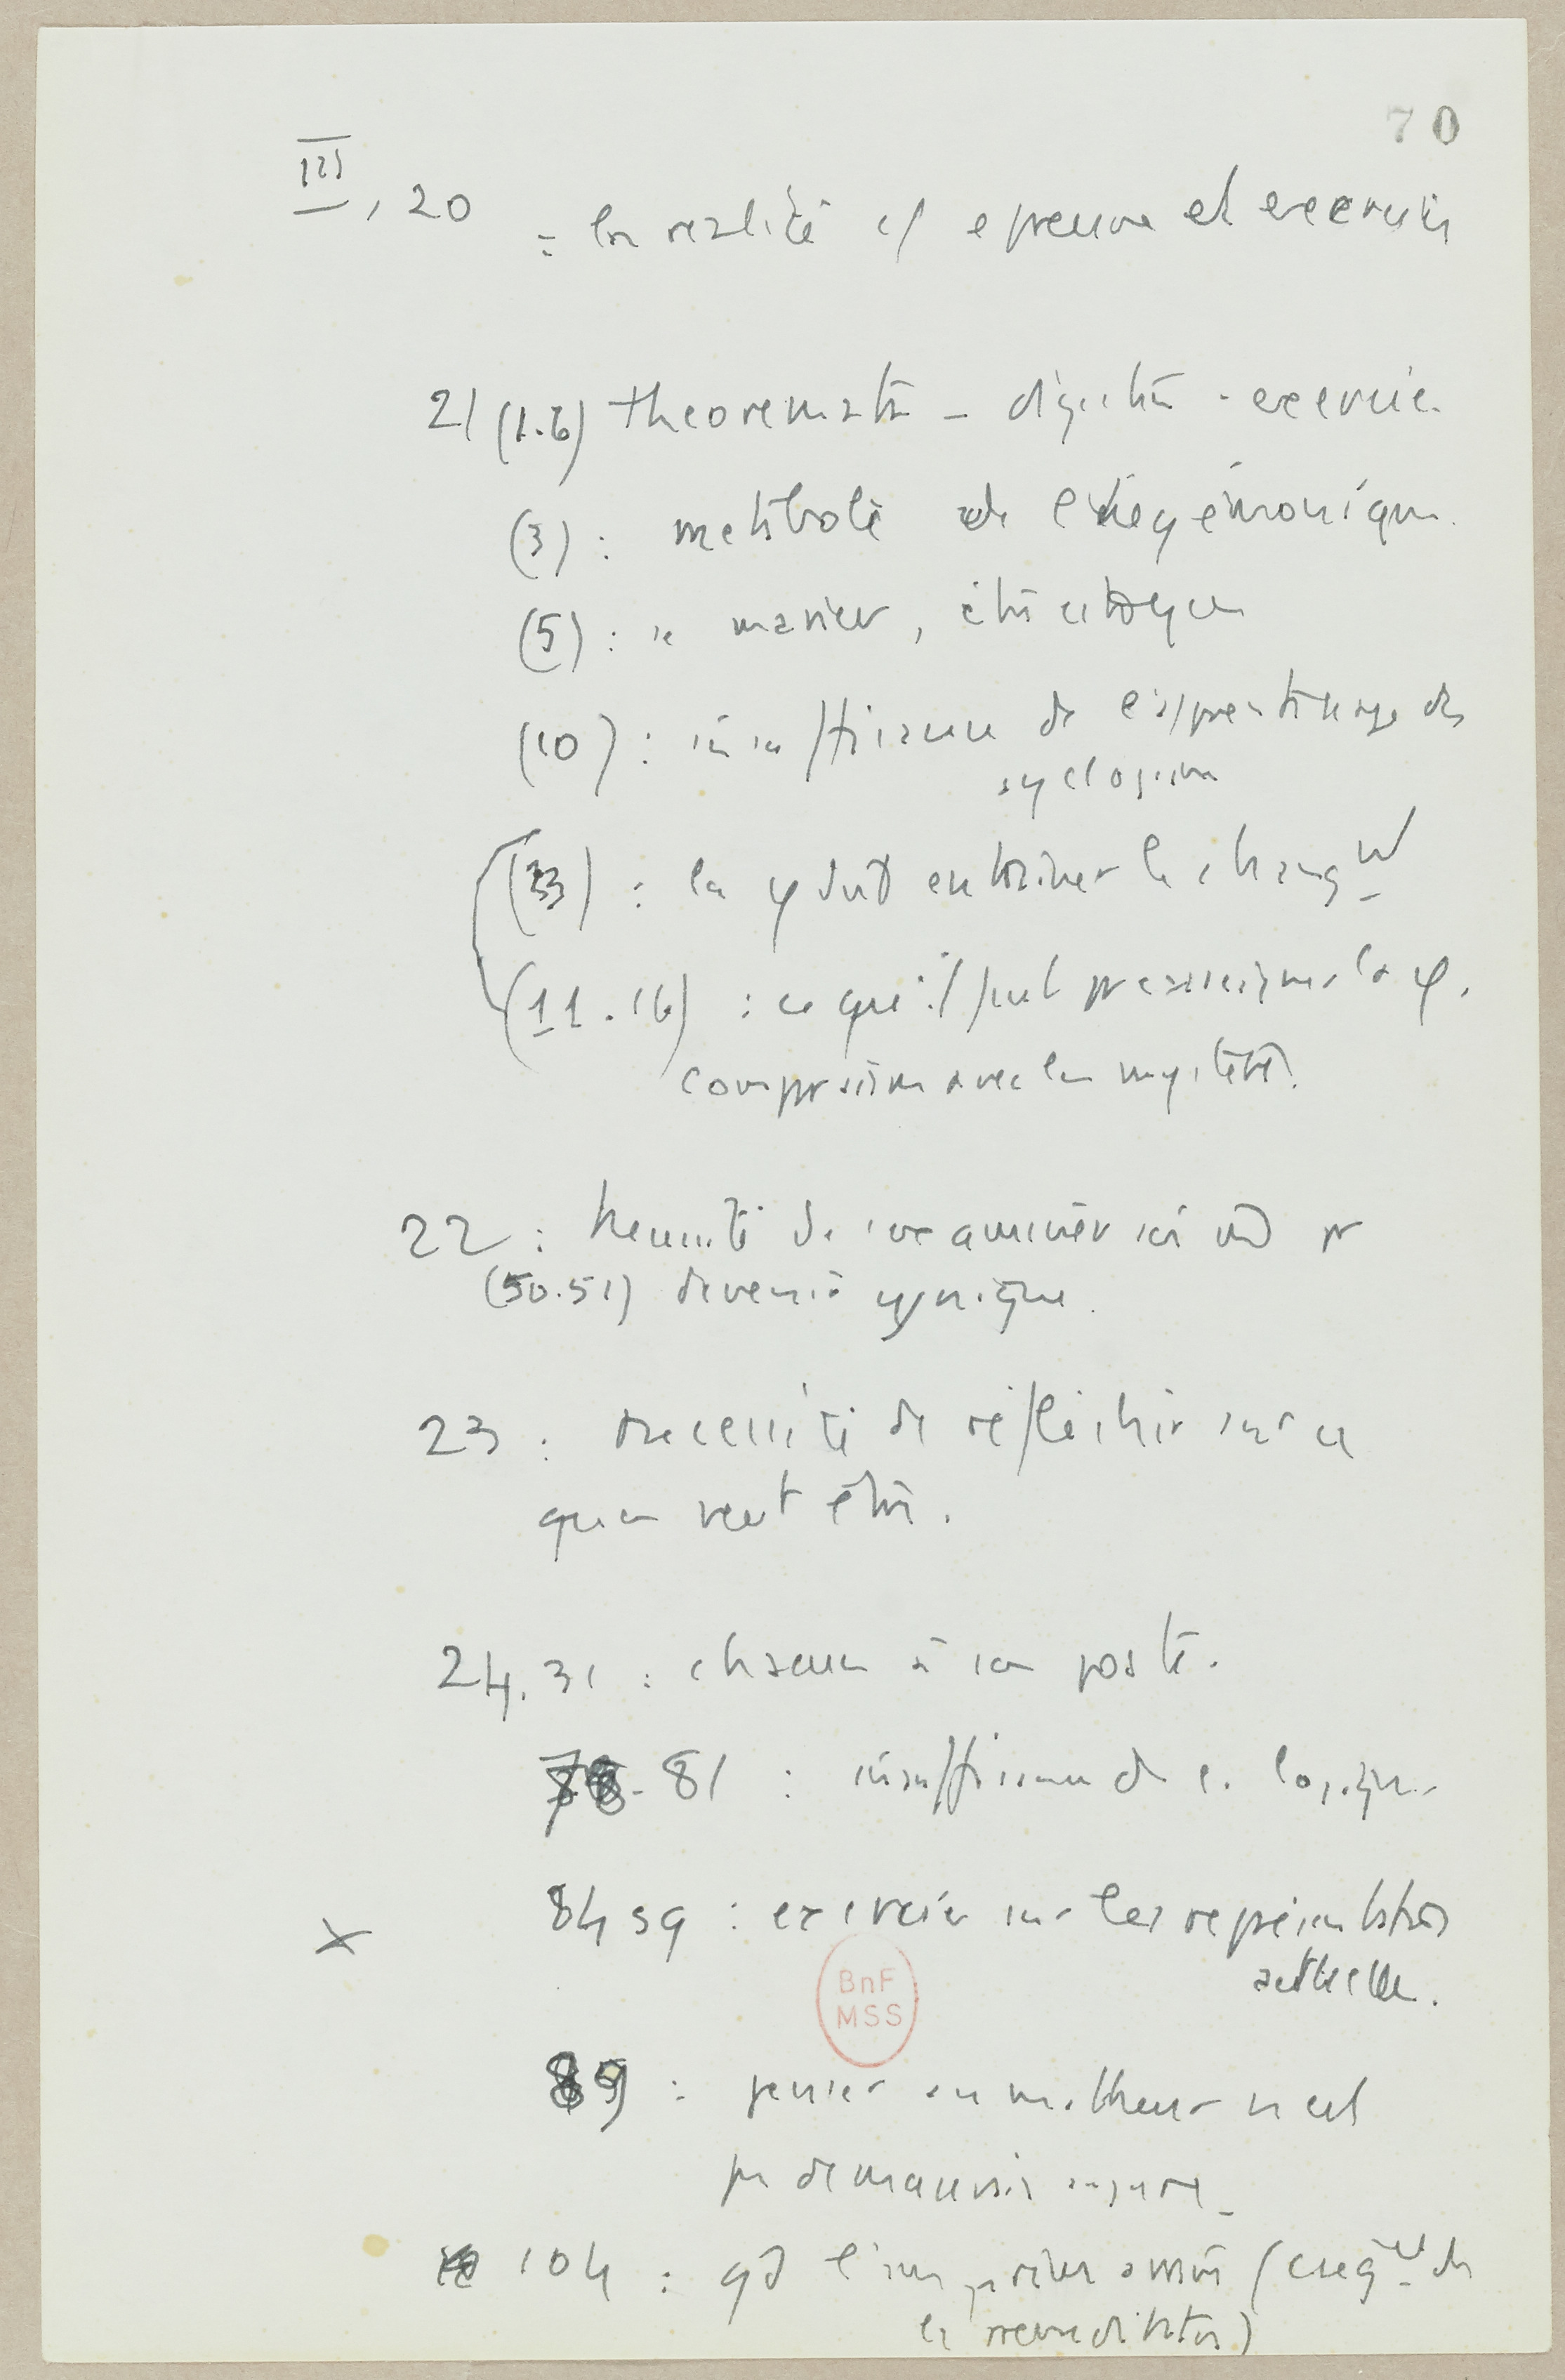 70
III, 20 = la realité c/ epreuve et exercice
21 (1.6) theoremata – digestion - exercice
(3) : metabolè de l'hégémonique.
(5) : se marier, être citoyen
(10) : insuffisance de l'apprentissage des
syllogismes
(33) : la φ doit entrainer le changt
(11.16) : ce que
comparaison avec les mystères.
22 : Necessité de s'examiner soi md pr
(50.51) devenir cynique.
23 : necessité de réfléchir sur ce
qu'on veut être.
24. 31 : chacun à son poste.
78-81 : insuffisance de la logique
84 sq : exercice sur les représentations
x
actuelles.
BnF
MSS
89 : penser au malheur n'est
pas de mauvais augure
104 : qd l'
(praemeditatio)